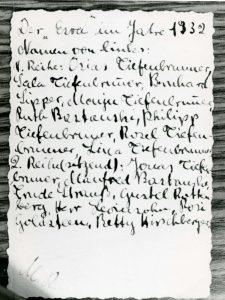 Der „Esra" im Jahre 1932
Namen von links:
1. Reihe: Tiefenbrunner,
Sala Tiefenbrunner, Bernhard
Lipper, Monju Tiefenbrunner,
Ruth Bartanski, Philipp
Tiefenbrunner, Rosel Tiefen-
brunner, Lina Tiefenbrunner
2. Reihe (sitzend): Jonas Tiefen-
brunner, Manfred Bartanski,
Trude Strauß, Gustel Rothen-
berg, Herr Levinsohn, Rosi
Goldstein, Betty Hirschberger